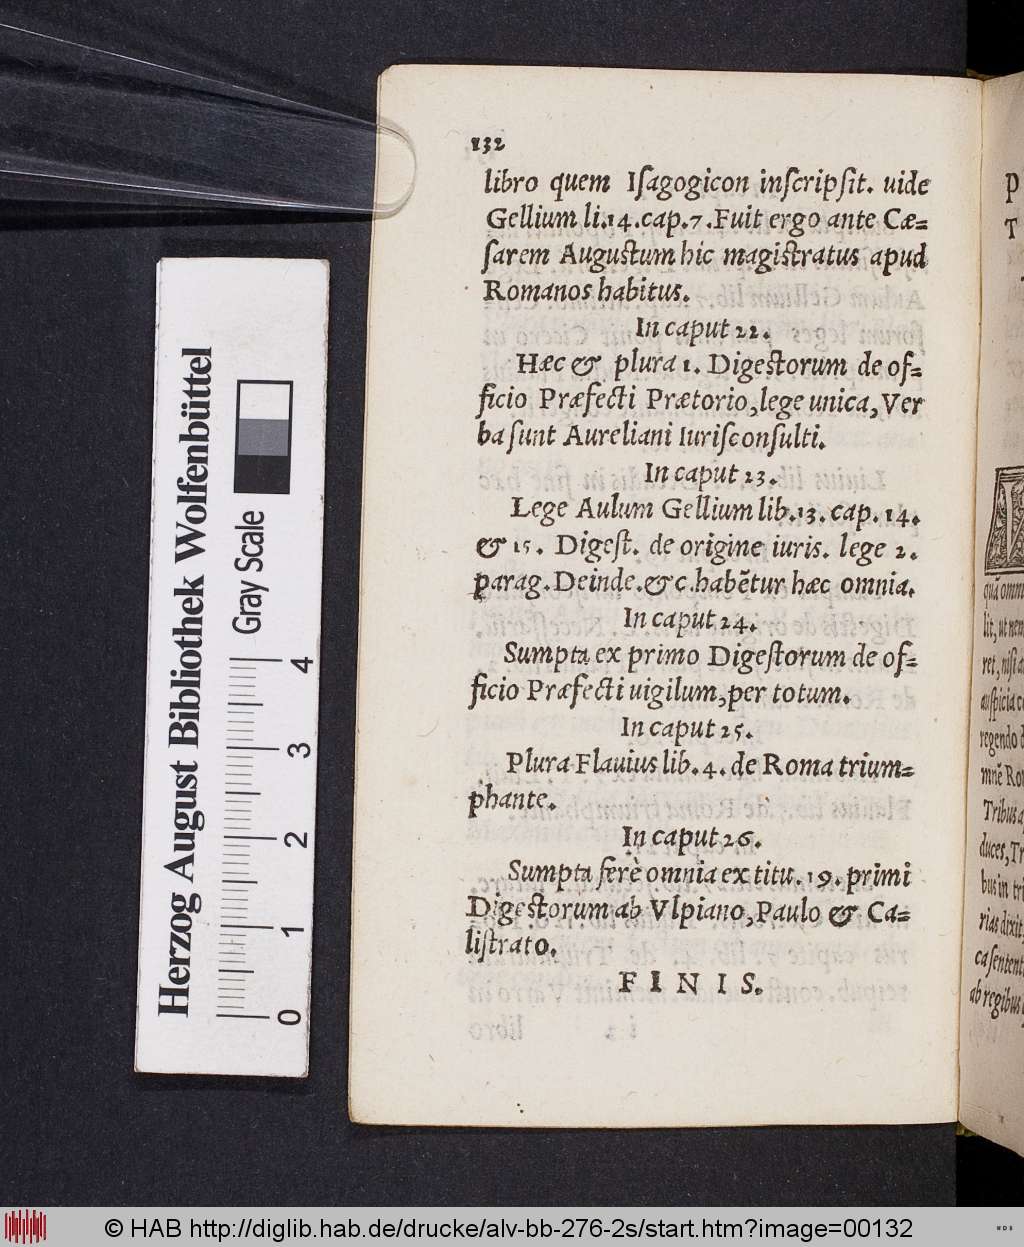 132
libro quem Iſagogicon inſcripſit. uide
Gellium li.14.cap.7.Fuit ergo ante Cæ=
ſarem Auguſtum hic magiſtratus apud
Romanos habitus.
In caput 22.
Hæc & plura 1. Digeſtorum de of=
ficio Præfecti Prætorio,lege unica,Ver
ba ſunt Aureliani Iuriſconſulti.
In caput 23.
Lege Aulum Gellium lib.13. cap. 14.
& 15. Digeſt. de origine iuris. lege 2.
parag. Deinde.&c.habētur hæc omnia.
In caput 24.
Sumpta ex primo Digeſtorum de of=
ficio Præfecti uigilum,per totum.
In caput 25.
Plura Flauius lib. 4. de Roma trium=
phante.
In caput 26.
Sumpta ferè omnia ex titu. 19. primi
Digeſtorum ab Vlpiano,Paulo & Ca=
liſtrato.
FINIS.
P
T
quā omni
lit, ut nem
ret, niſi a
auſpicia c
regendo d
mnē Ro
Tribus a
duces, Tr
bus in tri
rias dixit.
ca ſentent
ab regibus
Herzog August Bibliothek Wolfenbüttel
Gray Scale
0 1 2 3 4
© HAB http://diglib.hab.de/drucke/alv-bb-276-2s/start.htm?image=00132